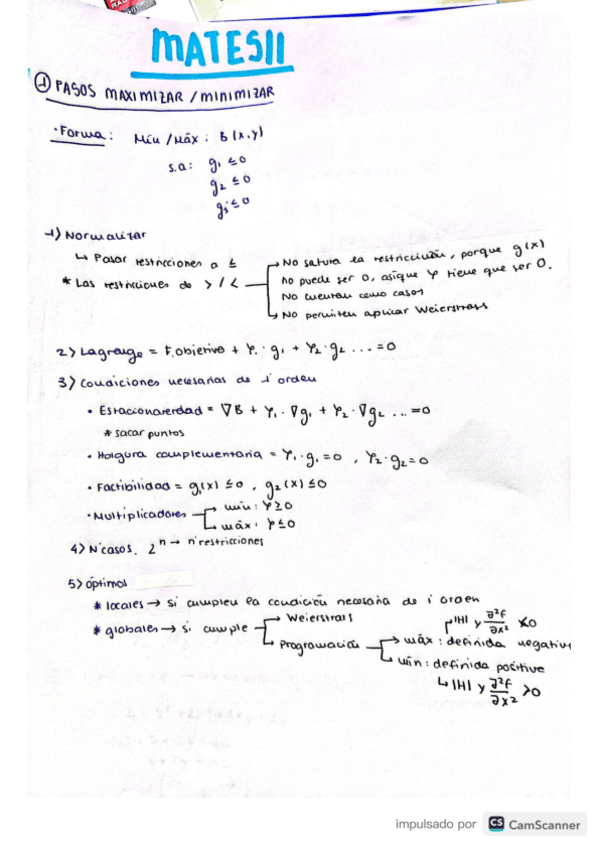 MATES II
① PASOS MAXIMIZAR / MINIMIZAR
· Forma: Mín / Máx : B (x,y)
s.a: g₁ ≤ 0
g₂ ≤ 0
gⱼ ≤ 0
1) Normalizar
↳ Pasar restricciones a ≤
* Las restricciones de > / <
→ No satura la restricción, porque g(x)
no puede ser 0, asique φ tiene que ser 0.
No cuentan como casos
→ No permiten aplicar Weierstrass
2) Lagrange = F.objetivo + φ₁ · g₁ + φ₂ · g₂ ... = 0
3) Condiciones necesarias de 1º orden
· Estacionareidad = ∇B + φ₁ · ∇g₁ + φ₂ · ∇g₂ ... = 0
* sacar puntos
· Holgura complementaria = φ₁ · g₁ = 0 , φ₂ · g₂ = 0
· Factibilidad = g₁(x) ≤ 0 , g₂(x) ≤ 0
· Multiplicadores → mín: φ ≥ 0
→ máx: φ ≤ 0
4) Nº casos. 2ⁿ → nº restricciones
5) óptimos
* locales → si cumplen la condición necesaria de 1º orden
* globales → si cumple → Weierstrass
→ Programación → máx: definida negativ
→ |H| y ∂²f/∂x² <0
→ mín: definida positive
↳ |H| y ∂²f/∂x² >0
impulsado por CS CamScanner